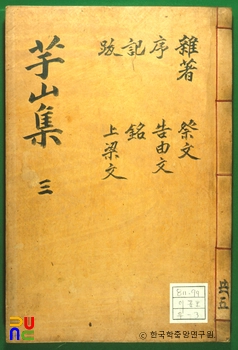 芋山集 三
雜著
序
記
跋
祭文
告由文
銘
上梁文
共五
© 한국학중앙연구원